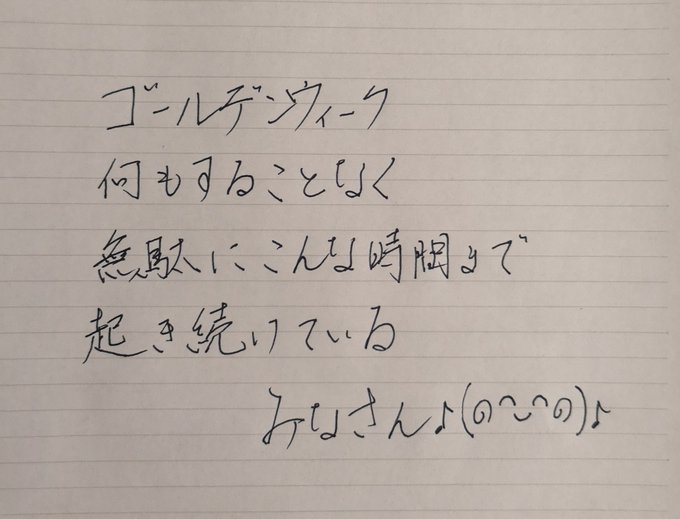 ゴールデンウィーク
何もすることなく
無駄にこんな時間まで
起き続けている
みなさん♪(๑ᵔᵕᵔ๑)♪